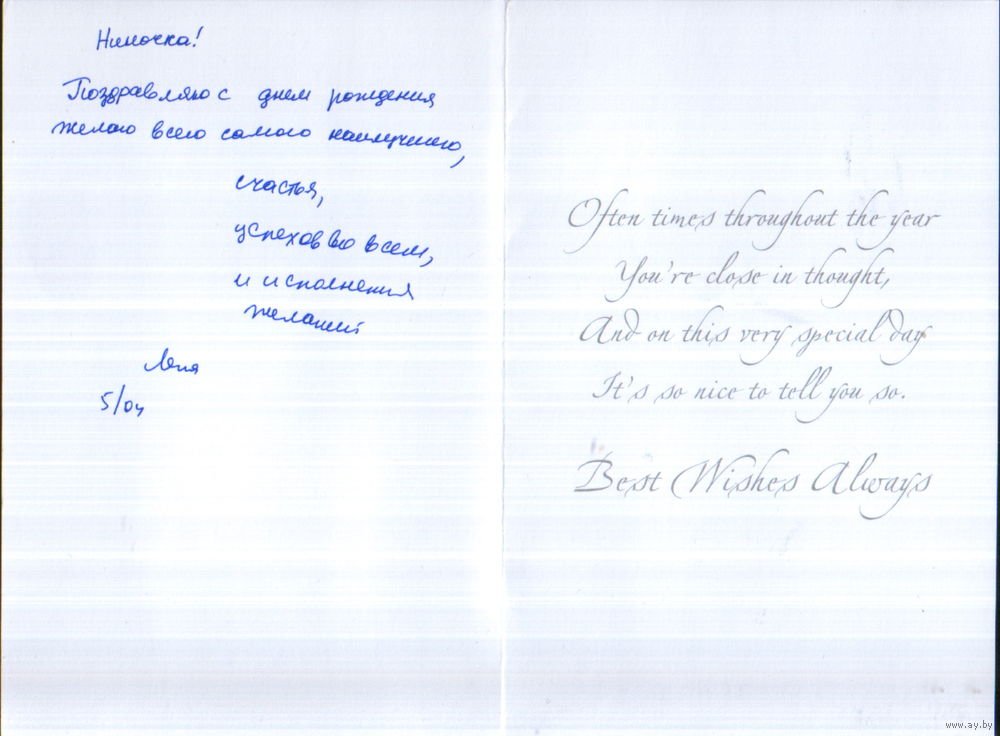 Ниночка!
Поздравляю с днем рождения
желаю всего самого наилучшего,
счастья,
успехов во всем,
и исполнения
желаний
Лена
5/04
Often times throughout the year
You're close in thought,
And on this very special day
It's so nice to tell you so.
Best Wishes Always
www.ay.by